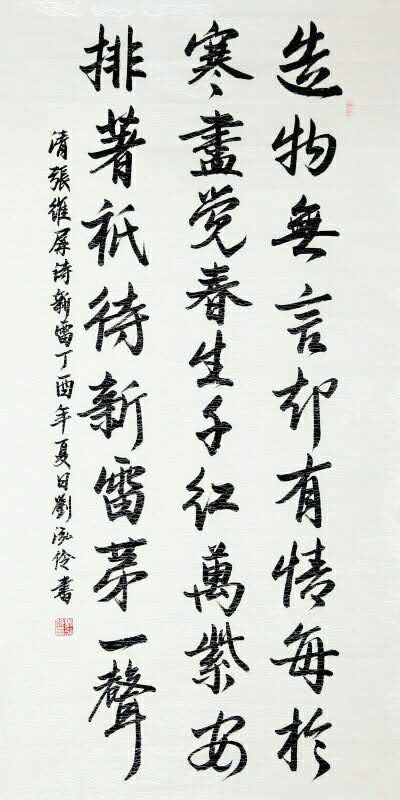 造物無言却有情每於
寒盡觉春生千红萬紫安
排著祇待新雷第一聲
清張維屏詩新雷丁酉年夏日劉泓伶書